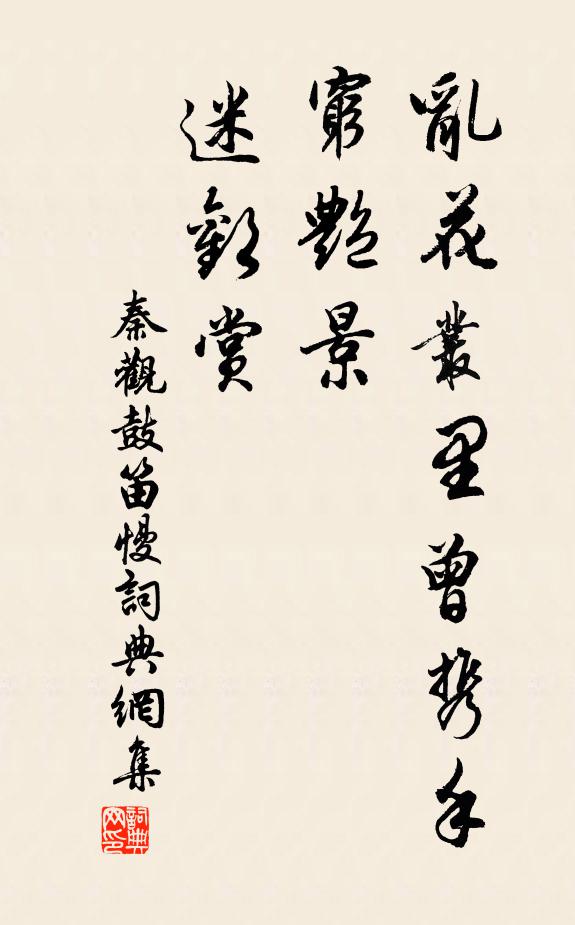 亂花叢里曾携手
窮艷景
迷歡賞
秦觀鼓笛慢詞典網集
詞典網印